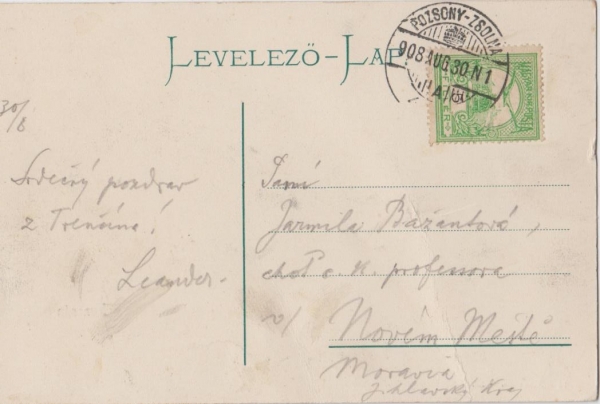 LEVELEZŐ-LAP
POZSONY-ZSOLNA
908 AUG 30 N 1
30/8
Srdečný pozdrav
z Trenčína!
Leander.
Paní
Jarmila Bažantová,
choť c. k. professora
v/ Novém Městě
Moravia
Jihlavský Kraj